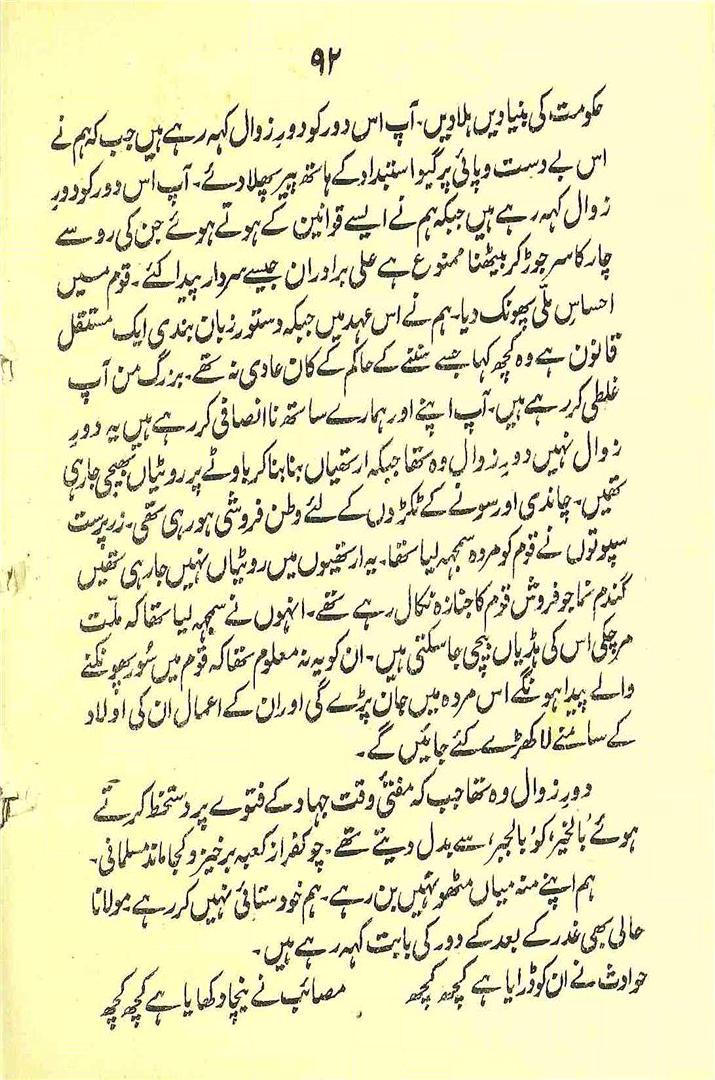 ۹۲
حکومت کی بنیادیں ہلا دیں۔ آپ اس دور کو دورِ زوال کہہ رہے ہیں جب کہ ہم نے
اس بے دست و پائی پر گیو استبداد کے ہاتھ پیر پھلا دئے۔ آپ اس دور کو دورِ
زوال کہہ رہے ہیں جبکہ ہم نے ایسے قوانین کے ہوتے ہوئے جن کی رو سے
چار کا سر جوڑ کر بیٹھنا ممنوع ہے علی برادران جیسے سردار پیدا کئے۔ قوم میں
احساسِ ملّی پھونک دیا۔ ہم نے اس عہد میں جبکہ دستور زبان بندی ایک مستقل
قانون ہے وہ کچھ کہا جسے سننے کے حاکم کے کان عادی نہ تھے۔ بزرگ من آپ
غلطی کر رہے ہیں۔ آپ اپنے اور ہمارے ساتھ ناانصافی کر رہے ہیں یہ دورِ
زوال نہیں دورِ زوال وہ تھا جبکہ ارتھیاں بنا بنا کر باوٹے پر روٹیاں بھیجی جا رہی
تھیں۔ چاندی اور سونے کے ٹکڑوں کے لئے وطن فروشی ہو رہی تھی۔ زر پرست
سپوتوں نے قوم کو مردہ سمجھ لیا تھا۔ یہ ارتھیوں میں روٹیاں نہیں جا رہی تھیں
گندم نما جو فروش قوم کا جنازہ نکال رہے تھے۔ انہوں نے سمجھ لیا تھا کہ ملّت
مر چکی اس کی ہڈیاں بیچی جا سکتی ہیں۔ ان کو یہ نہ معلوم تھا کہ قوم میں سُور پھونکنے
والے پیدا ہونگے اس مردہ میں جان پڑے گی اور ان کے اعمال ان کی اولاد
کے سامنے لا کھڑے کئے جائیں گے۔
دورِ زوال وہ تھا جب کہ مفتیٔ وقت جہاد کے فتوے پر دستخط کرتے
ہوئے ’بالخیر‘ کو ’بالجبر‘ سے بدل دیتے تھے۔ چو کفر از کعبہ برخیزد کجا ماند مسلمانی۔
ہم اپنے منہ میاں مٹھو نہیں بن رہے۔ ہم خودستائی نہیں کر رہے مولانا
حالی بھی غدر کے بعد کے دور کی بابت کہہ رہے ہیں۔
حوادث نے ان کو ڈرایا ہے کچھ کچھ مصائب نے نیچا دکھایا ہے کچھ کچھ